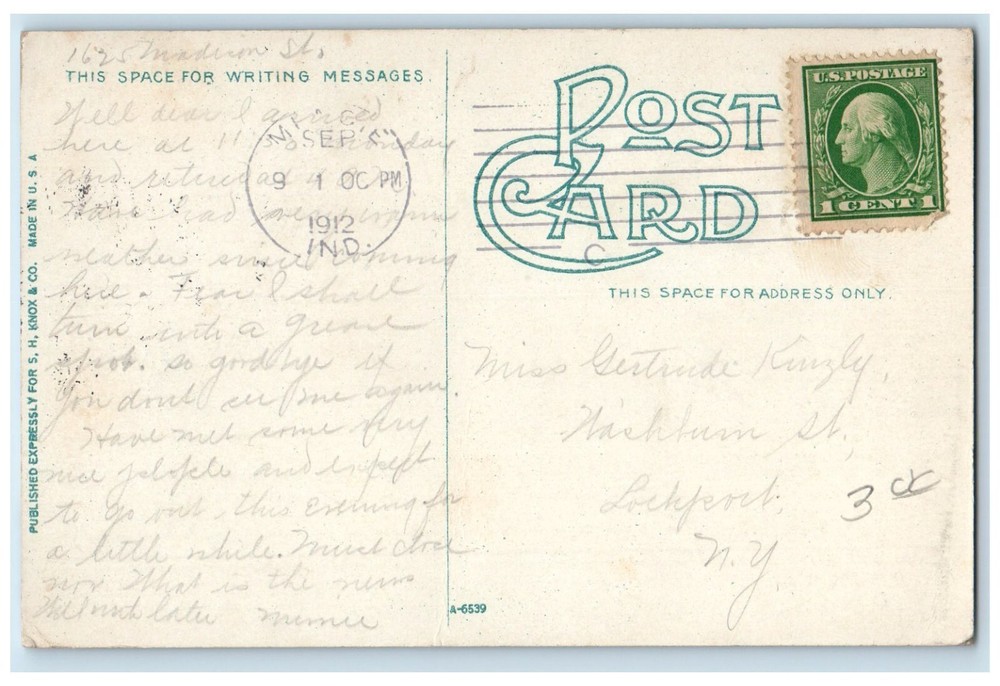 1625 Madison St.
THIS SPACE FOR WRITING MESSAGES.
Well dear I arrived
here at 11 30 Monday
and
have had very warm
weather since coming
here. Fear I shall
turn into a grease
spot. so goodbye if
you dont see me again
Have met some very
nice people and expect
to go out this evening for
a little while. Must close
now What is the news
Will write later Minnie
PUBLISHED EXPRESSLY FOR S. H. KNOX & CO. MADE IN U. S. A
SEP 4
9 1 00 PM
1912
IND.
POST
CARD
C
U.S. POSTAGE
1 CENT 1
THIS SPACE FOR ADDRESS ONLY.
Miss Gertrude Kinzly,
Washburn St.,
Lockport,
N.Y.
3
A-6539